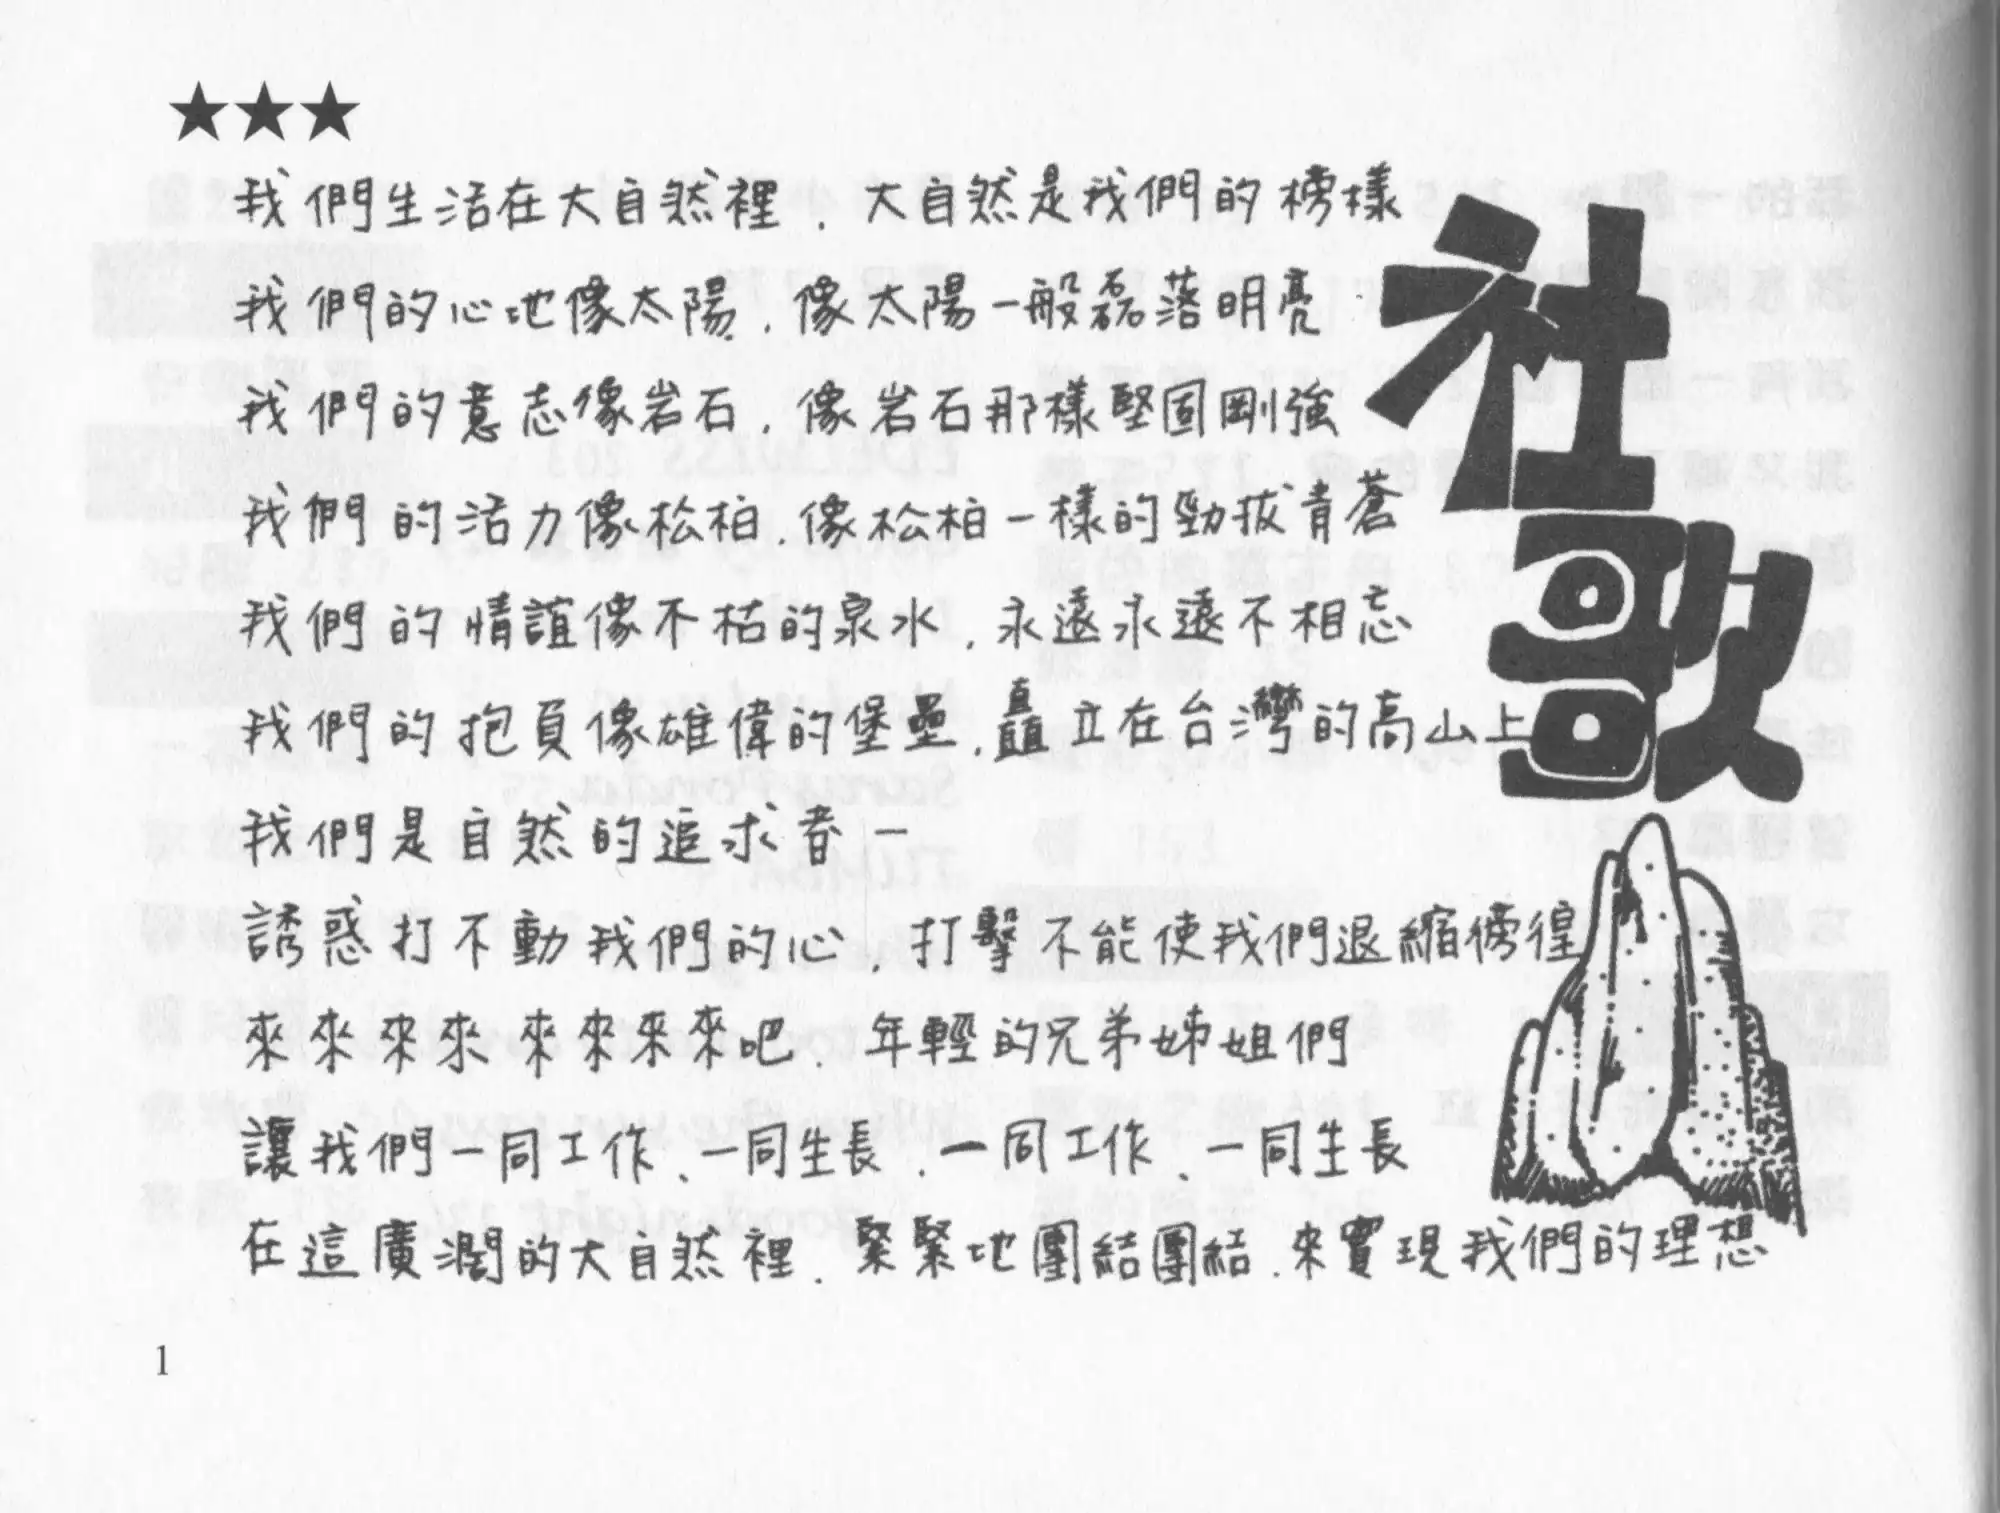 ★★★
社歌
我們生活在大自然裡，大自然是我們的榜樣
我們的心地像太陽，像太陽一般磊落明亮
我們的意志像岩石，像岩石那樣堅固剛強
我們的活力像松柏，像松柏一樣的勁拔青蒼
我們的情誼像不枯的泉水，永遠永遠不相忘
我們的抱負像雄偉的堡壘，矗立在台灣的高山上
我們是自然的追求者－
誘惑打不動我們的心，打擊不能使我們退縮徬徨
來來來來 來來來來吧，年輕的兄弟姊姐們
讓我們一同工作、一同生長，一同工作、一同生長
在這廣濶的大自然裡，緊緊地團結團結，來實現我們的理想
1